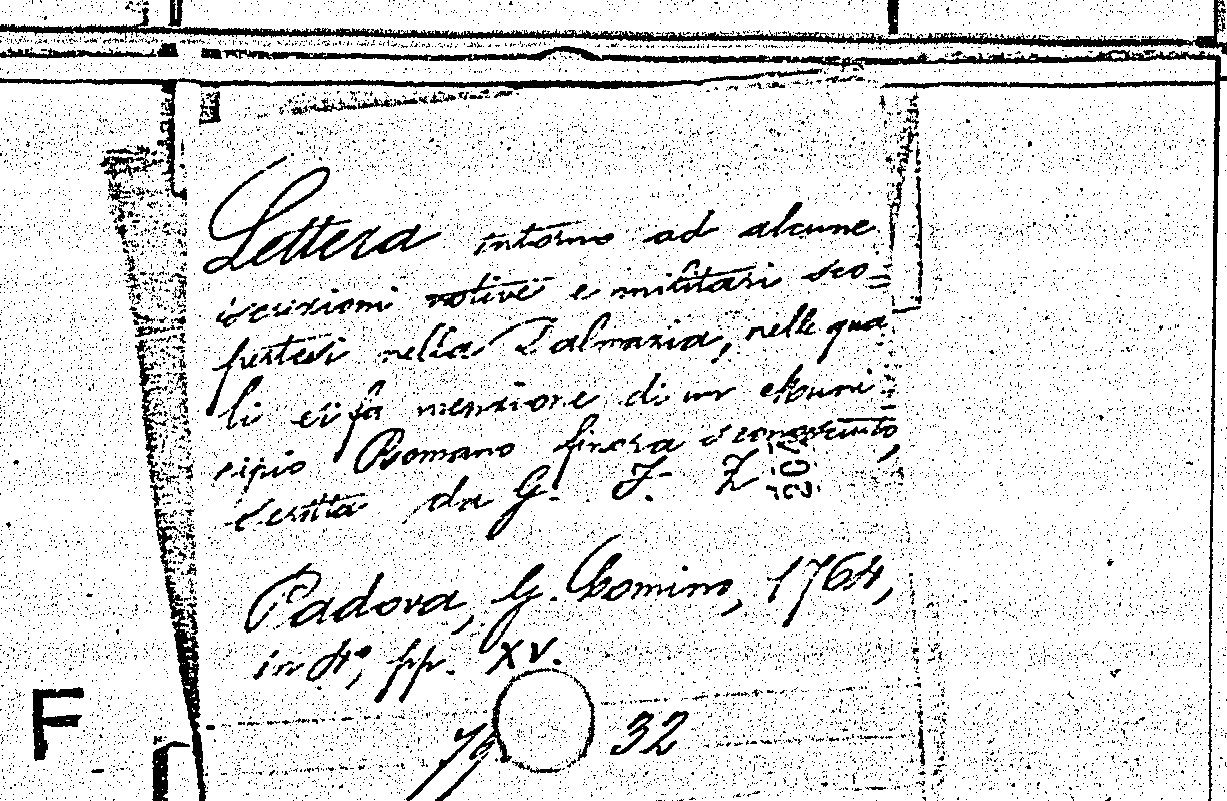 Lettera intorno ad alcune
iscrizioni votive e militari sco-
pertesi nella Dalmazia, nelle qua
li si fa menzione di un Muni-
cipio Romano finora sconosciuto,
scritta da G. F. Z
Padova, G. Comino, 1764,
in 4º, pp. XV.
32
F